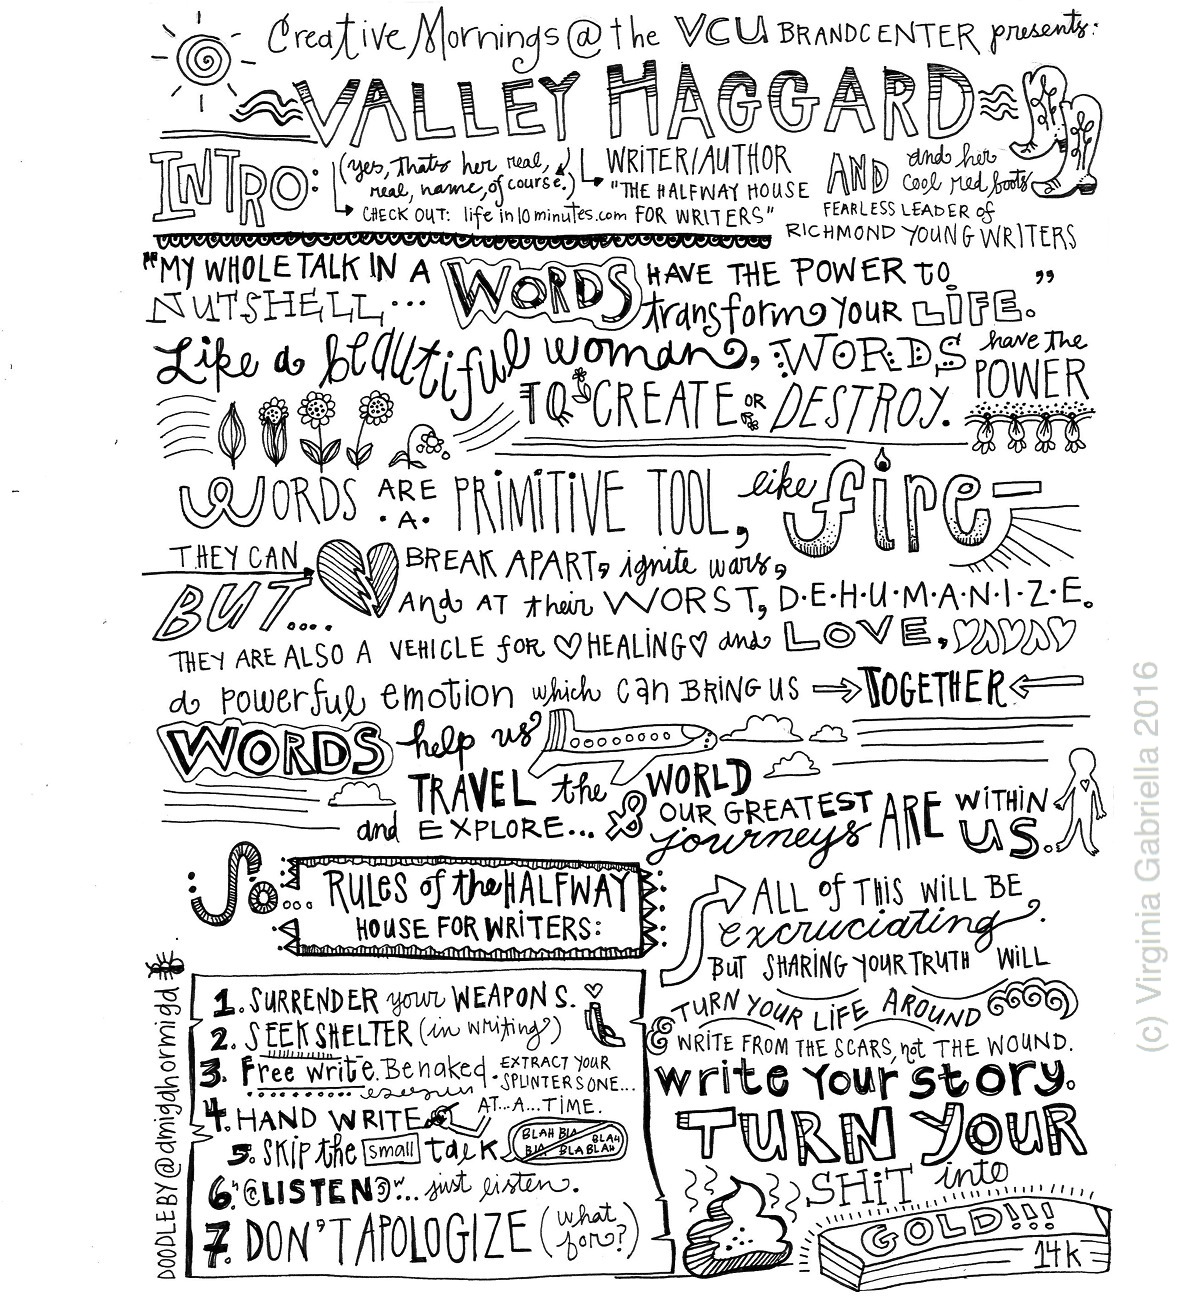 Creative Mornings @ the VCU BRANDCENTER presents:
VALLEY HAGGARD
INTRO: (yes, thats her real, real, name, of course.)
CHECK OUT: life in 10 minutes.com
WRITER/AUTHOR
"THE HALFWAY HOUSE FOR WRITERS"
AND
and her cool red boots
FEARLESS LEADER of
RICHMOND YOUNG WRITERS
"MY WHOLE TALK IN A NUTSHELL... WORDS HAVE THE POWER TO transform YOUR LIFE."
Like a beautiful woman, WORDS have the POWER
TO CREATE OR DESTROY.
WORDS ARE A PRIMITIVE TOOL, like fire—
THEY CAN BREAK APART, ignite wars,
And AT their WORST, D·E·H·U·M·A·N·I·Z·E.
BUT....
THEY ARE ALSO A VEHICLE for HEALING and LOVE,
a powerful emotion which can BRING US TOGETHER
WORDS help us
TRAVEL the WORLD
and EXPLORE... & OUR GREATEST journeys ARE WITHIN US.
So... RULES of the HALFWAY
HOUSE FOR WRITERS:
1. SURRENDER your WEAPONS.
2. SEEK SHELTER (in writing)
3. Free write. Be naked. EXTRACT YOUR SPLINTERS ONE... AT...A...TIME.
4. HAND WRITE
5. SKIP the small talk
BLAH BLA BLAH
BLA BLA BLAH
6. "LISTEN"... just listen.
7. DON'T APOLOGIZE (what for?)
ALL of THIS WILL BE
excruciating.
BUT SHARING YOUR TRUTH WILL
TURN YOUR LIFE AROUND
WRITE FROM THE SCARS, not THE WOUND.
write your story.
TURN YOUR
SHIT into
GOLD!!!
14K
DOODLE BY @amigahormiga
(c) Virginia Gabriella 2016